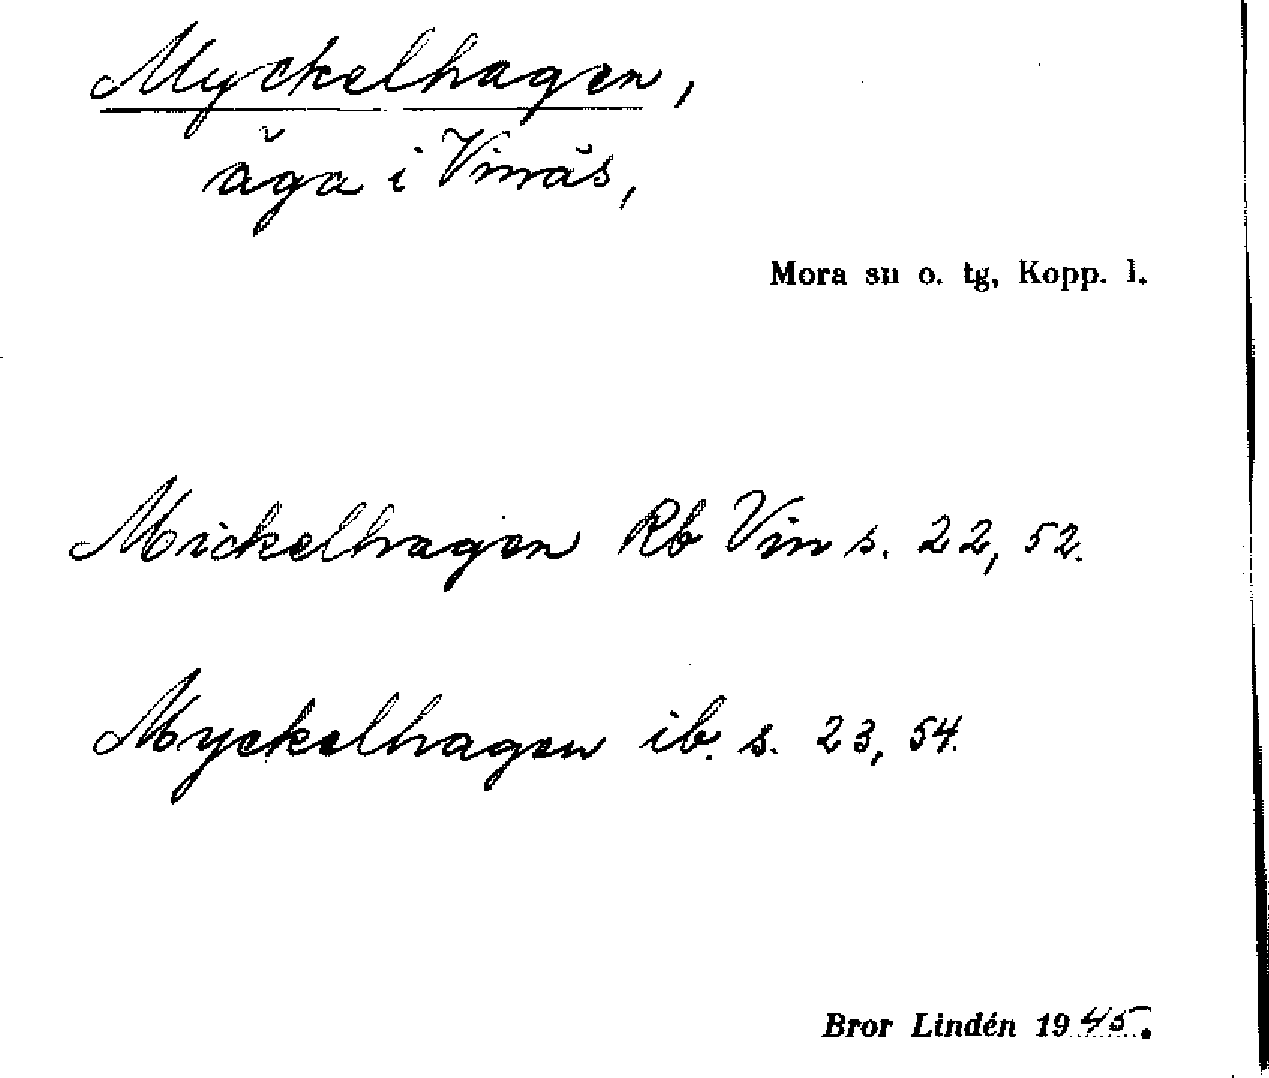 Myckelhagen,
äga i Vinäs,
Mora sn o. tg, Kopp. l.
Mickelhagen Rb Vin s. 22, 52.
Myckelhagen ib. s. 23, 54.
Bror Lindén 1945.